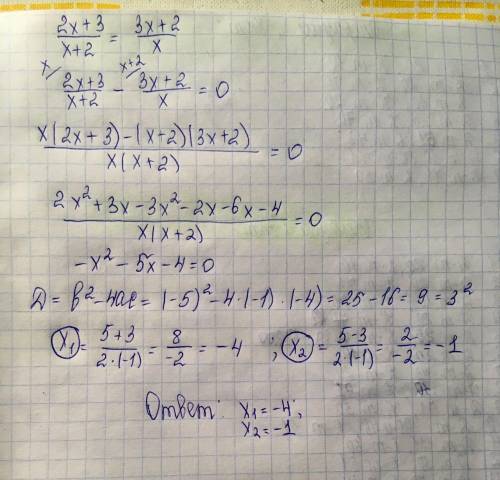 (2x+3)/(x+2) = (3x+2)/x
x/ (2x+3)/(x+2) - x+2/ (3x+2)/x = 0
(x(2x+3)-(x+2)(3x+2))/(x(x+2)) = 0
(2x²+3x-3x²-2x-6x-4)/(x(x+2)) = 0
-x²-5x-4=0
D = b²-4ac = (-5)²-4·(-1)·(-4) = 25-16 = 9 = 3²
x₁ = (5+3)/(2·(-1)) = 8/(-2) = -4 ; x₂ = (5-3)/(2·(-1)) = 2/(-2) = -1
Ответ: x₁=-4;
x₂=-1